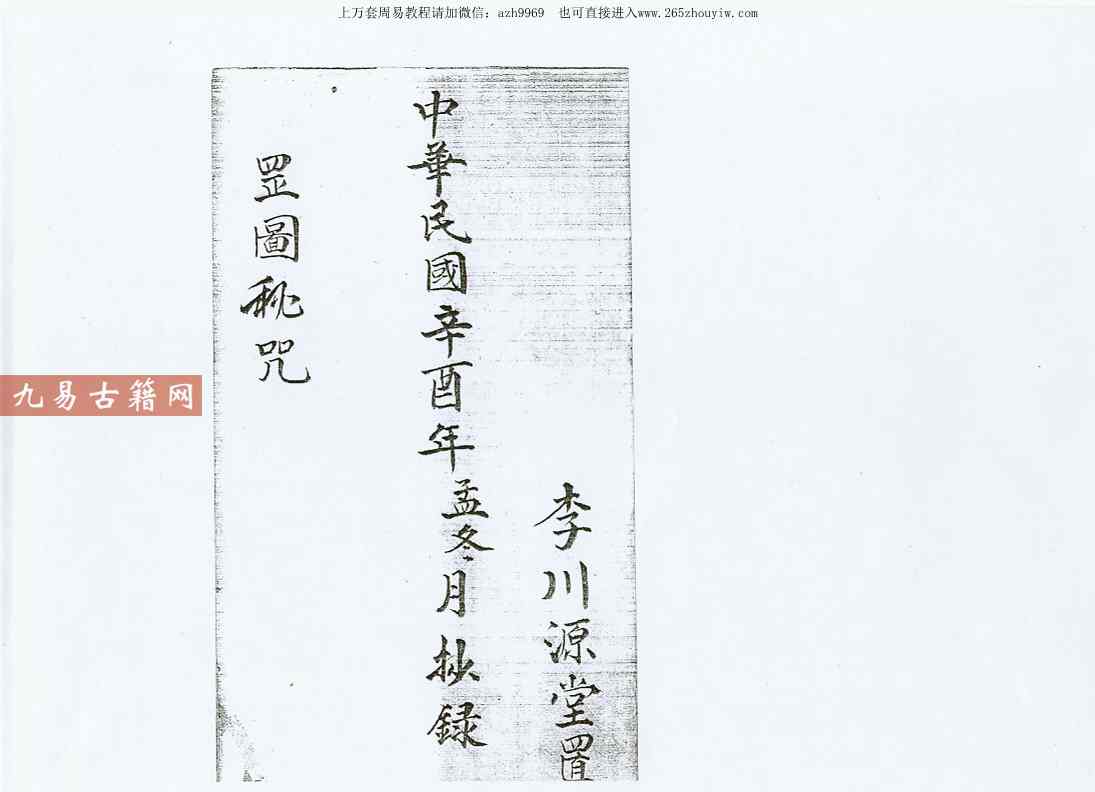 上万套周易教程请加微信：azh9969 也可直接进入www.265zhouyiw.com
李川源堂置
中華民國辛酉年孟冬月抄録
罡圖秘咒
九易古籍网